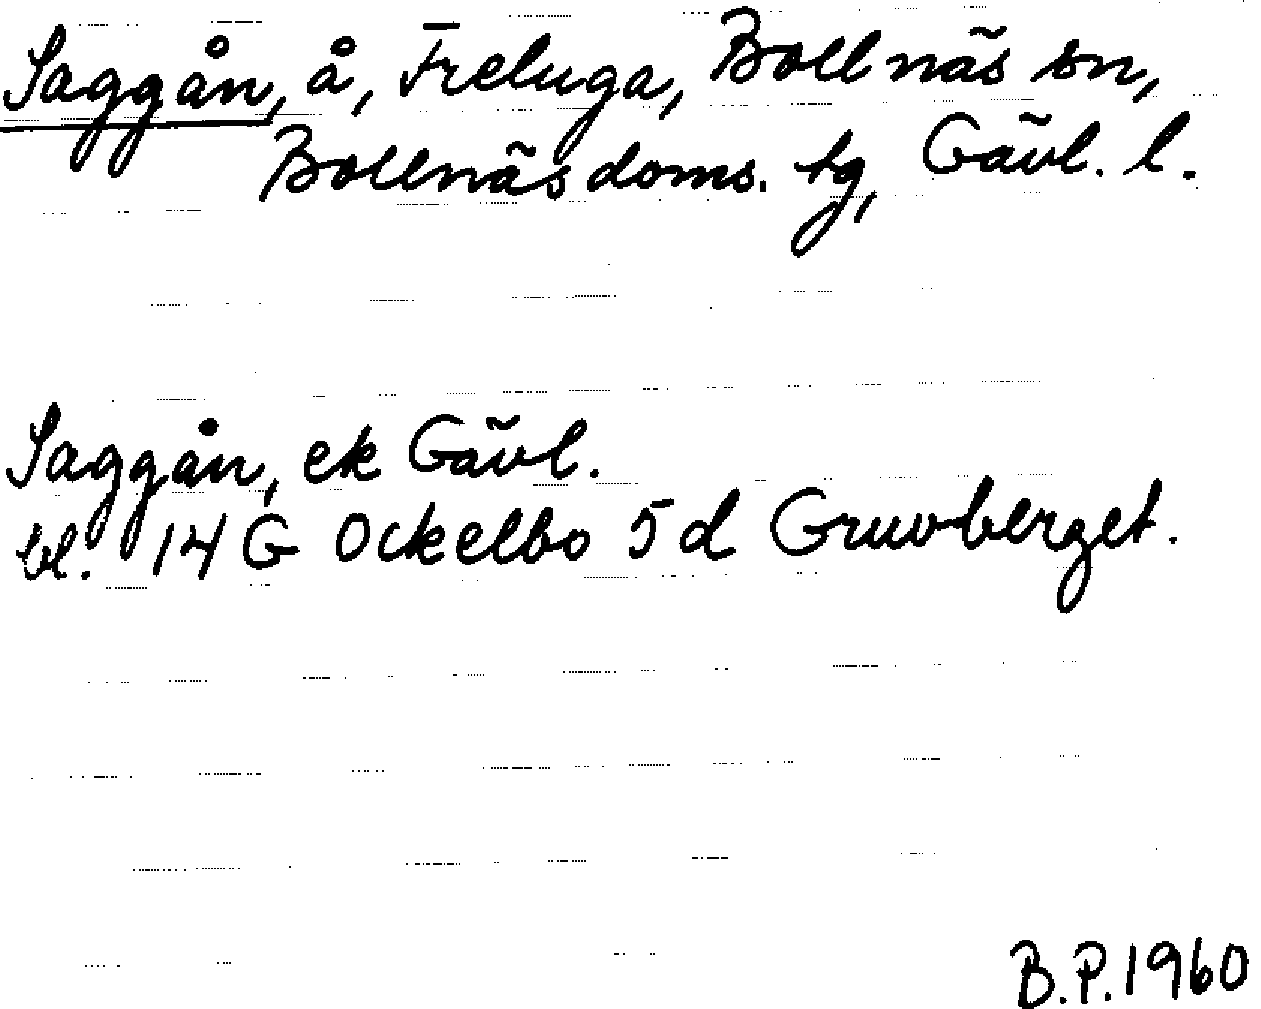 Saggån, å, Freluga, Bollnäs sn,
Bollnäs doms. tg, Gävl. l.
Saggån, ek Gävl.
bl. 14 G Ockelbo 5 d Gruvberget.
B.P. 1960